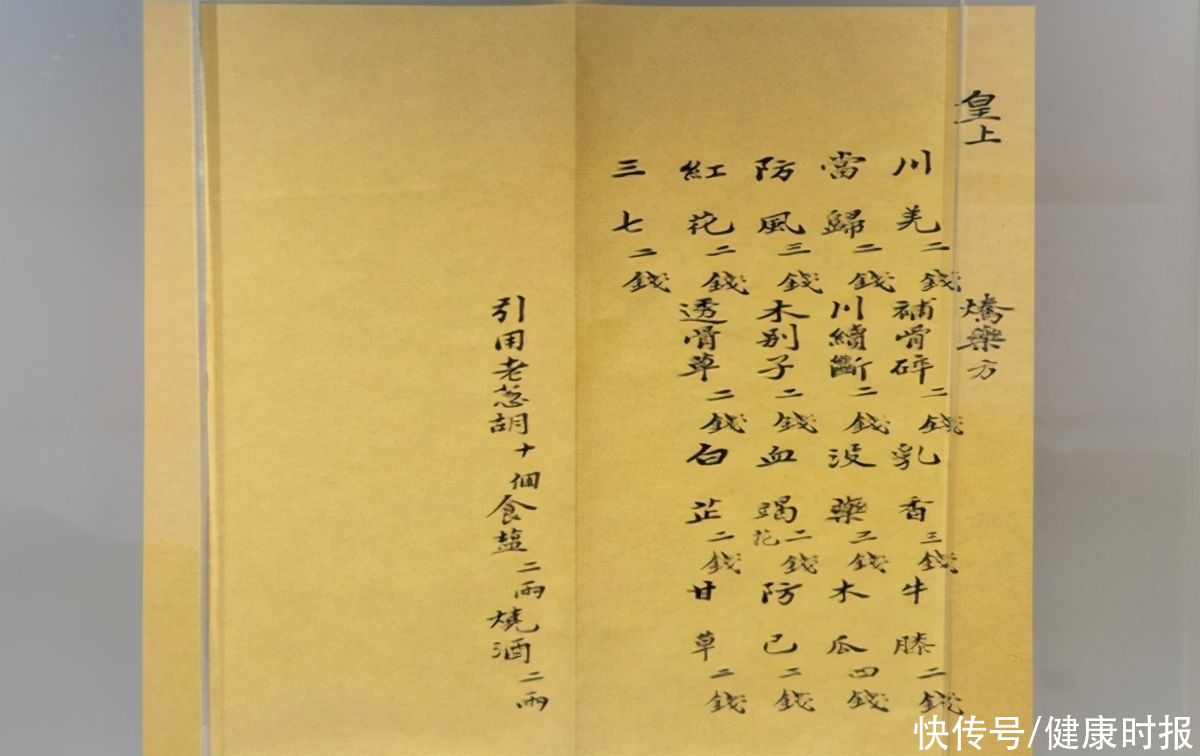 皇上 燆藥方
川羌二錢 補骨碎二錢 乳香三錢 牛膝二錢
當歸二錢 川續斷二錢 没藥三錢 木瓜四錢
防風三錢 木别子二錢 血竭花二錢 防已二錢
紅花二錢 透骨草二錢 白芷二錢 甘草二錢
三七二錢
引用老葱胡十個食鹽二兩燒酒二兩
快传号/健康时报